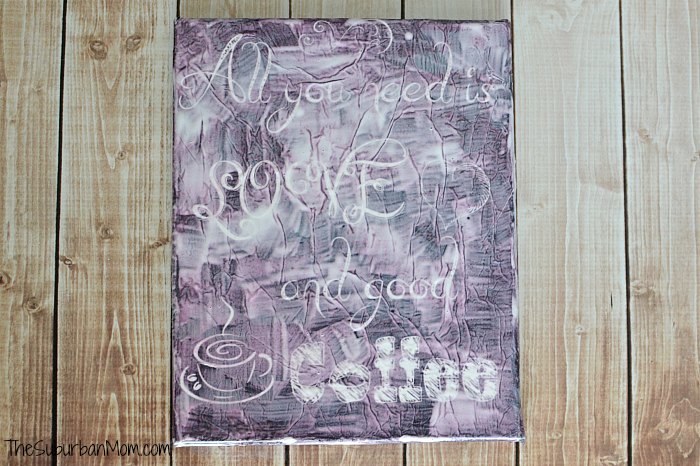 All you need is
LOVE
and good
Coffee
TheSuburbanMom.com